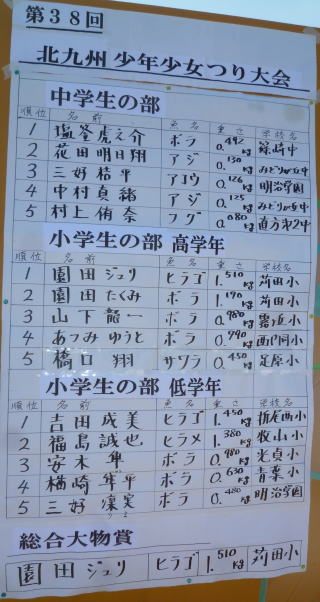 第38回
北九州 少年少女つり大会
中学生の部
順位 名前 魚名 重さ 学校名
1 塩峯虎之介 ボラ 0.492kg 篠崎中
2 花田明日翔 アジ 0.130kg みどりが丘中
3 三好桔平 アコウ 0.126kg 明治学園
4 中村真緒 アジ 0.125kg みどりが丘中
5 村上侑奈 フグ 0.080kg 直方第2中
小学生の部 高学年
順位 名前 魚名 重さ 学校名
1 園田ジュリ ヒラゴ 1.510kg 苅田小
2 園田たくみ ボラ 1.170kg 苅田小
3 山下龍一 ボラ 0.980kg 霧丘小
4 あつみゆうと ボラ 0.790kg 西門司小
5 橋口翔 サワラ 0.450kg 足原小
小学生の部 低学年
順位 名前 魚名 重さ 学校名
1 吉田成美 ヒラゴ 1.450kg 折尾西小
2 福島誠也 ヒラメ 1.380kg 牧山小
3 安木隼 ボラ 0.980kg 光貞小
4 楢崎隼平 ボラ 0.630kg 青葉小
5 三好凜実 ボラ 0.480kg 明治学園
総合大物賞
園田ジュリ ヒラゴ 1.510kg 苅田小